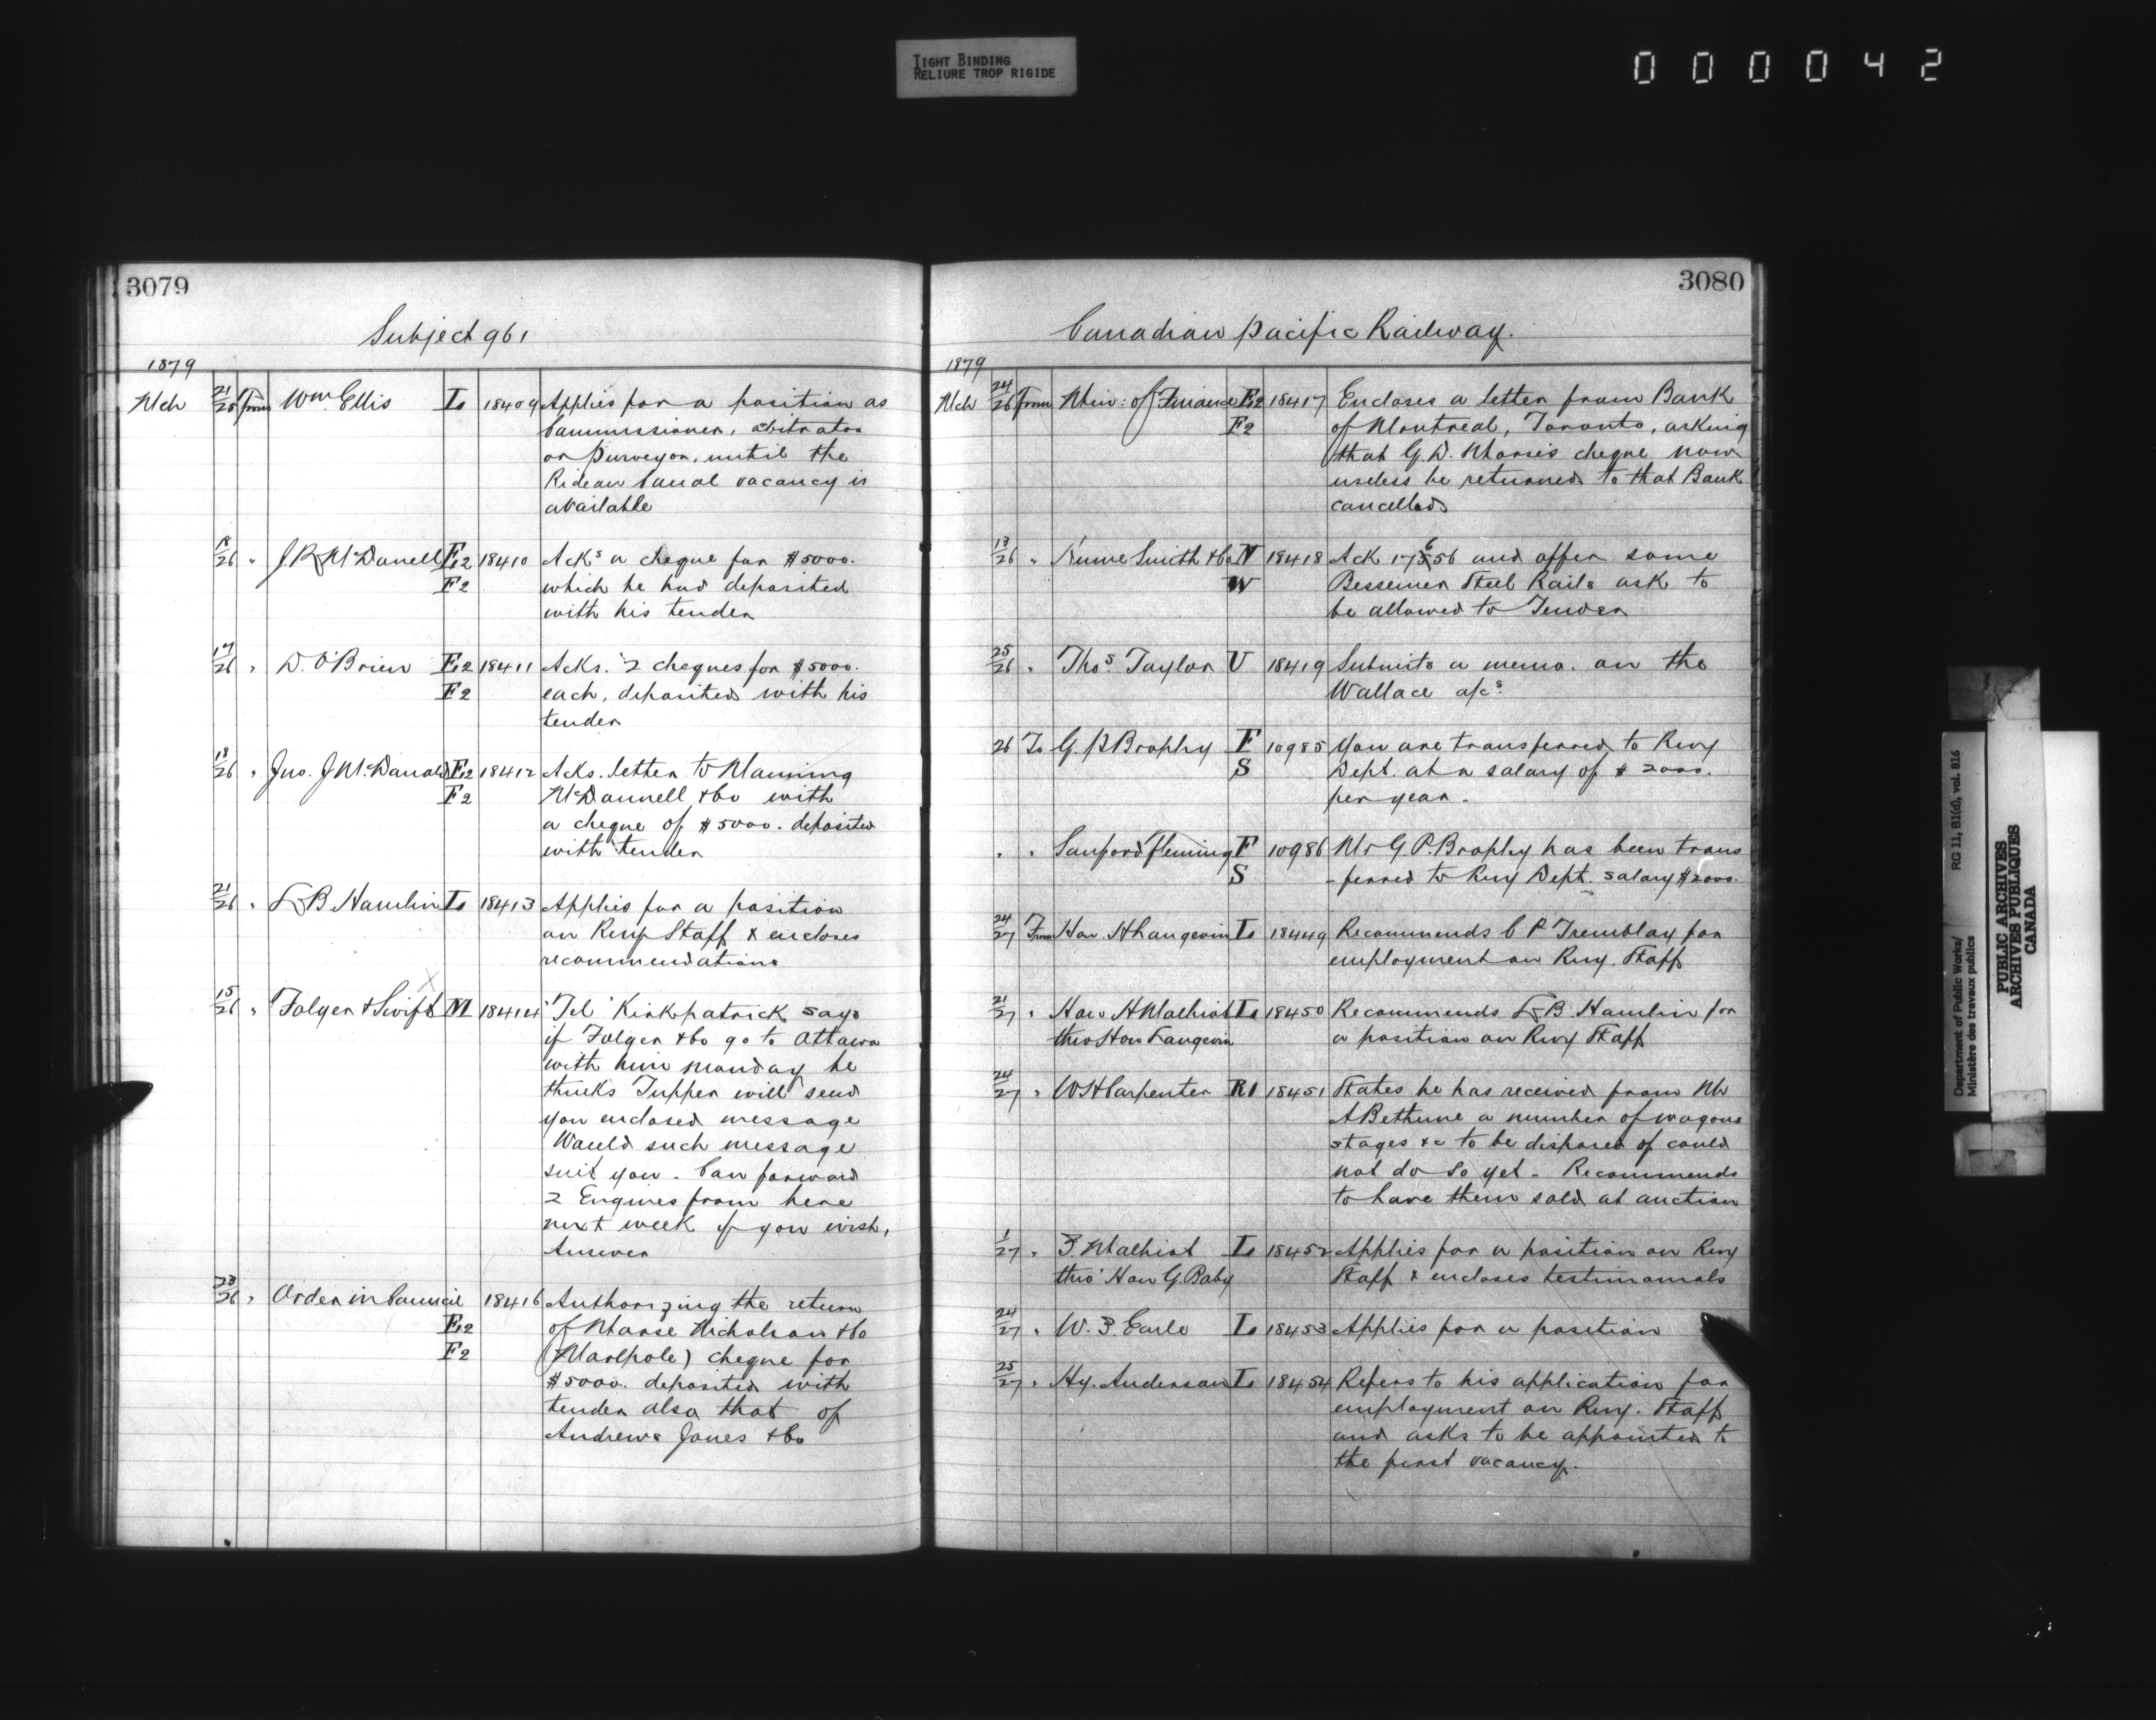 TIGHT BINDING
RELIURE TROP RIGIDE
000042
3079
Subject 961
1879
Mch 21/25 from Wm Ellis L 18409 Applies for a position as
Commissioner, abitrator
or Purveyor, until the
Rideau Canal vacancy is
available
18/26 " J.R. McDonell F,2 18410 Acks a cheque for $5000.
F2 which he had deposited
with his tender
17/26 " D. O'Brien F,2 18411 Acks. 2 cheques for $5000.
F2 each, deposited with his
tender
18/26 " Jno. J McDonald F,2 18412 Acks. letter to Manning
F2 McDonnell & Co with
a cheque of $5000. deposited
with tender
21/26 " L B Hamlin L 18413 Applies for a position
on Rwy Staff & encloses
recommendations
15/26 " Folger & Swift M 18414 'Tel' Kirkpatrick says
if Folger & Co go to Ottawa
with him monday he
thinks Tupper will send
you enclosed message
Would such message
suit you - Can forward
2 Engines from here
next week if you wish,
Answer
23/26 " Order in Council 18416 Authorizing the return
F,2 of Morse Nicholson & Co
F2 (Marpole) cheque for
$5000. deposited with
tender also that of
Andrews Jones & Co
3080
Canadian Pacific Railway.
1879
Mch 24/26 from Min: of Finance F,2 18417 Encloses a letter from Bank
F2 of Montreal, Toronto, asking
that G.D. Morse's cheque now
useless be returned to that Bank
cancelled
13/26 " Hume Smith & Co N 18418 Ack 17656 and offer some
W Bessemer Steel Rails ask to
be allowed to Tender
25/26 " Thos. Taylor U 18419 Submits a memo. on the
Wallace a/cs.
26 To G. P Brophy F 10985 You are transferred to Rwy
S Dept. at a salary of $2000.
per year -
" " Sanford Fleming F 10986 Mr G. P. Brophy has been trans
S -ferred to Rwy Dept. Salary $2000.
24/27 From Hon. H Langevin L 18449 Recommends C P. Tremblay for
employment on Rwy. Staff
21/27 " Hon H Malhiot L 18450 Recommends L B. Hamlin for
thro Hon Langevin a position on Rwy Staff
24/27 " W H Carpenter R1 18451 States he has received from Mr
A Bethune a number of wagons
stages &c to be disposed of could
not do so yet - Recommends
to have them sold at auction
1/27 " Z. Malhiot L 18452 Applies for a position on Rwy
thro' Hon G. Baby Staff & encloses testimonials
24/27 " W. Z. Earle L 18453 Applies for a position
25/27 " Hy. Anderson L 18454 Refers to his application for
employment on Rwy. Staff
and asks to be appointed to
the first vacancy.
Department of Public Works/ RG 11, B1(d), vol. 816
Ministère des travaux publics
PUBLIC ARCHIVES
ARCHIVES PUBLIQUES
CANADA